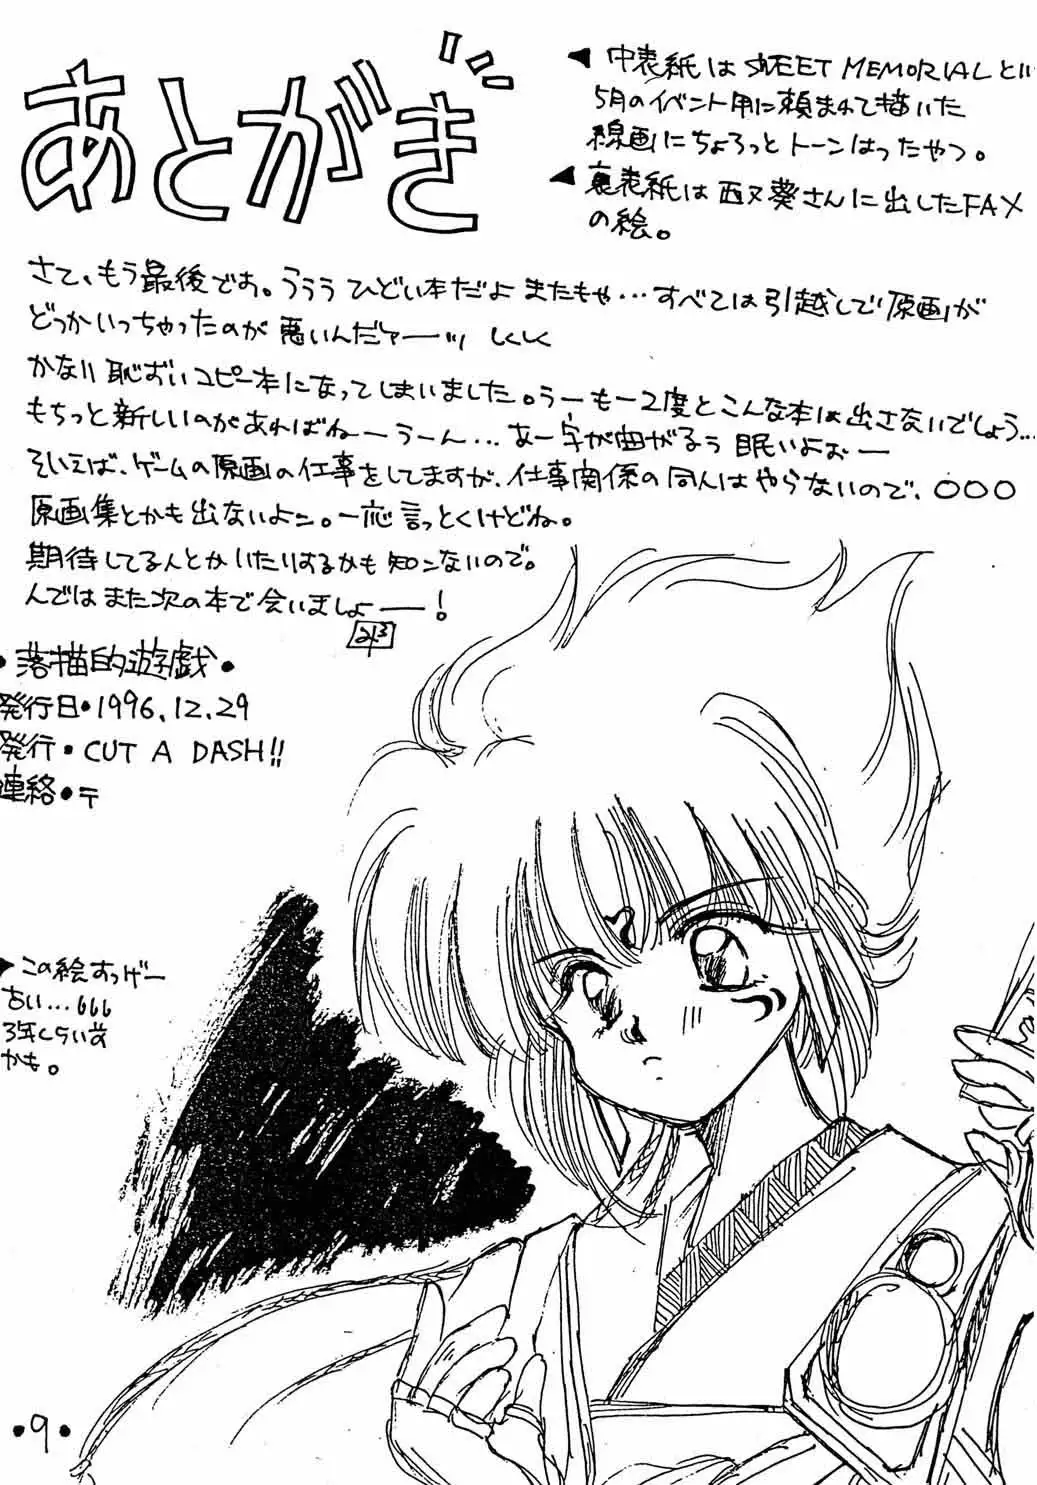 あとがき
◀ 中表紙は SWEET MEMORIAL とい
5月のイベント用に頼まれて描いた
線画にちょろっとトーンはったやつ。
◀ 裏表紙は西又葵さんに出したFAX
の絵。
さて、もう最後でお。ううう ひどい本だよ またもや…すべては引越しで原画が
どっかいっちゃったのが悪いんだァーッ しくしく
かなり恥ずいコピー本になってしまいました。うーもー2度とこんな本は出さないでしょう…
もちっと新しいのがあればねーうーん…あー字が曲がるぅ 眠いよおー
そいえば、ゲームの原画の仕事をしてますが、仕事関係の同人はやらないので、○○○
原画集とかも出ないよン。一応言っとくけどね。
期待してるんとかいたりするかも知ンないので。
んではまた次の本で会いましょー！
・落描的遊戯・
発行日・1996.12.29
発行・CUT A DASH!!
連絡・〒
▶ この絵すっげー
古い…
3年くらい前
かも。
・9・